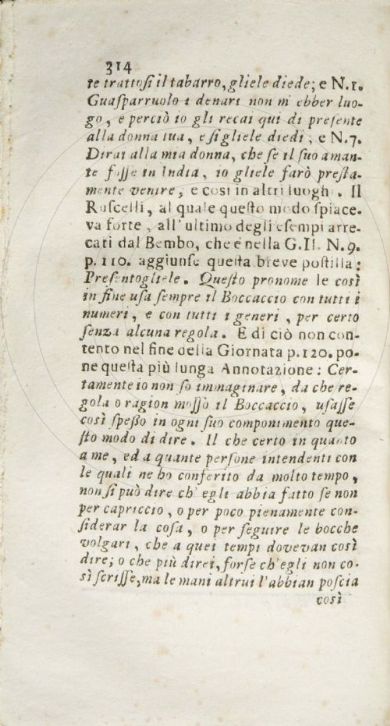 314
te trattosi il tabarro, gliele diede; e N.1.
Guasparruolo i denari non m' ebber luo-
go, e perciò io gli recai qui di presente
alla donna tua, e sì gliele diedi; e N.7.
Dirai alla mia donna, che se il suo aman-
te fosse in India, io gliele farò presta-
mente venire, e così in altri luoghi. Il
Ruscelli, al quale questo modo spiace-
va forte, all'ultimo degli esempi arre-
cati dal Bembo, che è nella G.II. N.9.
p. 110. aggiunse questa breve postilla:
Presentogliele. Questo pronome le così
in fine usa sempre il Boccaccio con tutti i
numeri, e con tutti i generi, per certo
senza alcuna regola. E di ciò non con-
tento nel fine della Giornata p.120. po-
ne questa più lunga Annotazione: Cer-
tamente io non so immaginare, da che re-
gola o ragion mosso il Boccaccio, usasse
così spesso in ogni suo componimento que-
sto modo di dire. Il che certo in quanto
a me, ed a quante persone intendenti con
le quali ne ho conferito da molto tempo,
non si può dire ch' egli abbia fatto se non
per capriccio, o per poco pienamente con-
siderar la cosa, o per seguire le bocche
volgari, che a quei tempi dovevan così
dire; o che più direi, forse ch'egli non co-
sì scrisse, ma le mani altrui l'abbian poscia
così